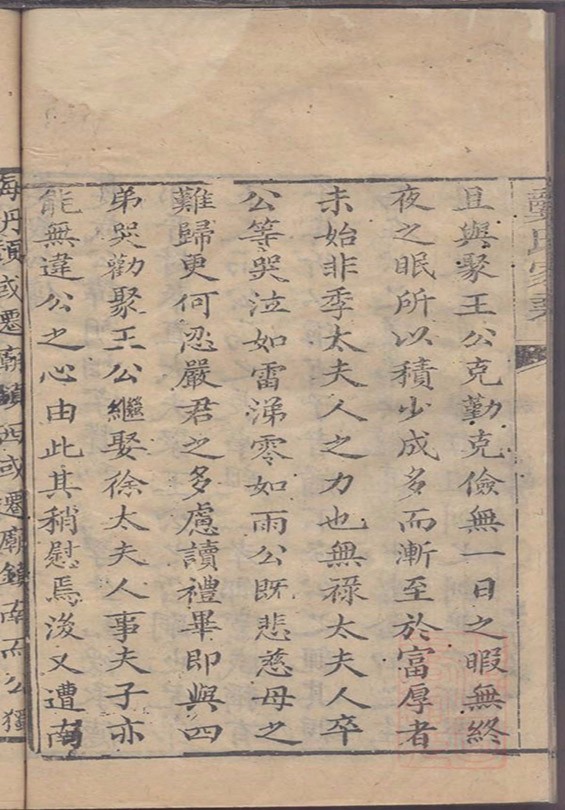 氏家乘
且與聚王公克勤克儉無一日之暇無終
夜之眠所以積少成多而漸至於富厚者
未始非季太夫人之力也無祿太夫人卒
公等哭泣如雷涕零如雨公既悲慈母之
難歸更何忍嚴君之多慮讀禮畢即與四
弟哭勸聚王公繼娶徐太夫人事夫子亦
能無違公之心由此其稍慰焉後又遭南
海丹頭或遷廟鎮西或遷廟鎮南而公獨